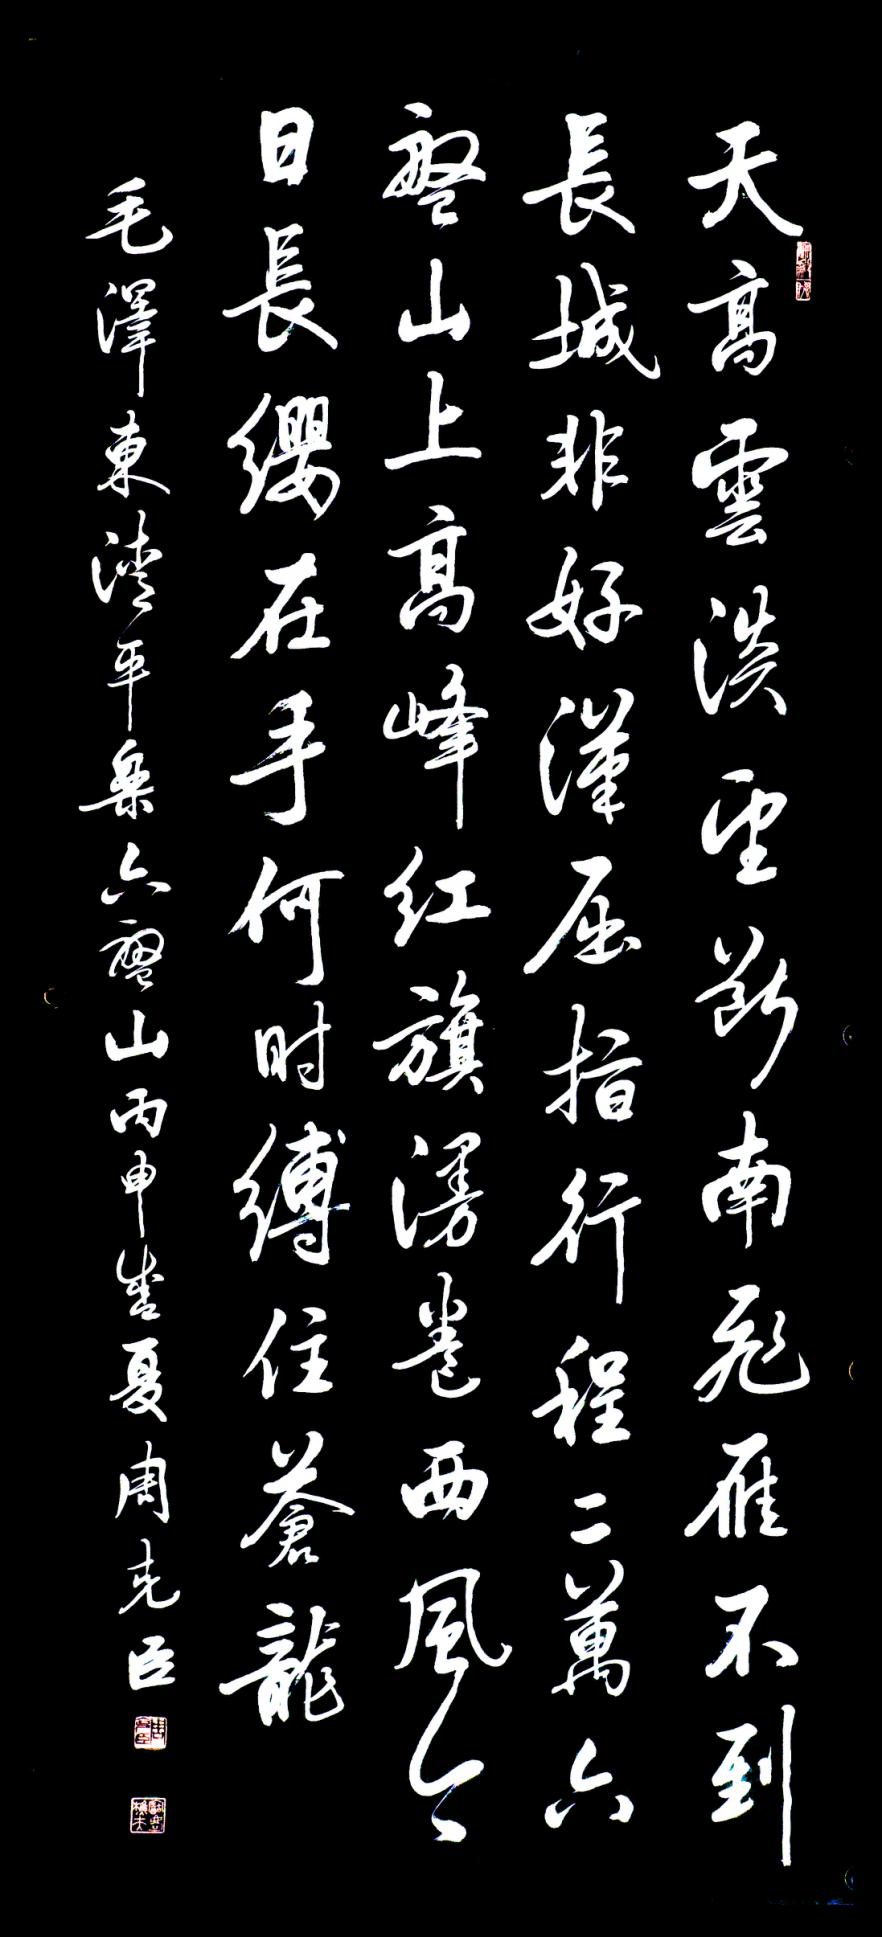 天高雲淡望斷南飛雁不到
長城非好漢屈指行程二萬六
盤山上高峰紅旗漫卷西風今
日長纓在手何時縛住蒼龍
毛澤東清平樂六盤山丙申盛夏周克臣